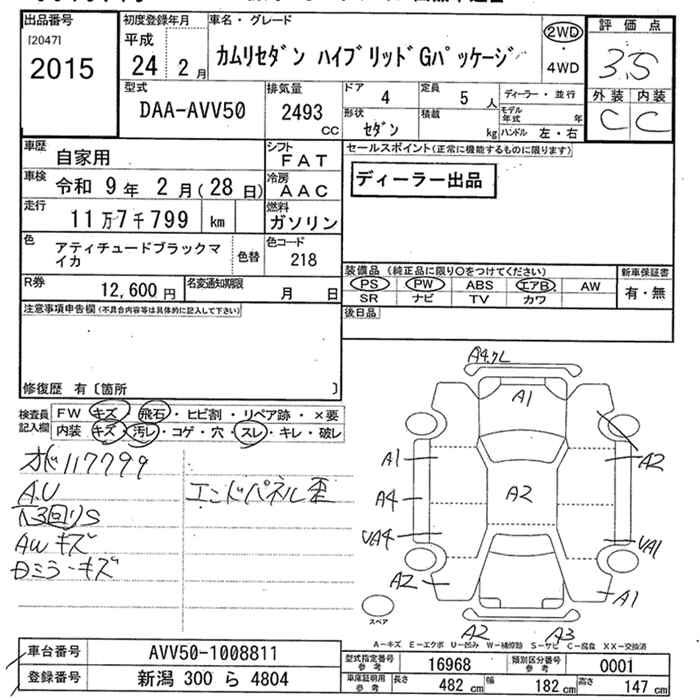 出品番号
[2047]
2015
初度登録年月
平成
24 2 月
車名・グレード
カムリセダン ハイブリッドGパッケージ
2WD
・
4WD
評価点
3.5
外装 内装
C C
型式
DAA-AVV50
排気量
2493
CC
ドア 4
定員 5 人
ディーラー・並行
形状
セダン
積載
kg
モデル
年式 年
ハンドル 左・右
車歴
自家用
シフト
FAT
セールスポイント(正常に機能するものに限ります)
ディーラー出品
車検
令和 9 年 2 月(28 日)
冷房
AAC
走行
11 万 7 千 799 km
燃料
ガソリン
色
アティチュードブラックマ
イカ
色替
色コード
218
R券
12,600 円
名変通知期限
月 日
装備品 (純正品に限り○をつけてください)
新車保証書
PS PW ABS エアB AW
SR ナビ TV カワ
有・無
後日品
注意事項申告欄(不具合内容等は具体的に記入して下さい)
修復歴 有〔箇所 〕
検査員
記入欄
FW キズ・飛石・ヒビ割・リペア跡・×要
内装 キズ・汚レ・コゲ・穴・スレ・キレ・破レ
117799
A.U
エンドパネル歪
AWキズ
ミラーキズ
A1
A1
A2
A4
A2
A1
A2
A1
A2
A3
スペア
A-キズ E-エクボ U-凹み W-補修跡 S-サビ C-腐食 XX-交換済
車台番号
AVV50-1008811
登録番号
新潟 300 ら 4804
型式指定番号
参考
16968
類別区分番号
参考
0001
車庫証明用
参考
長さ 482 cm
幅 182 cm
高さ 147 cm